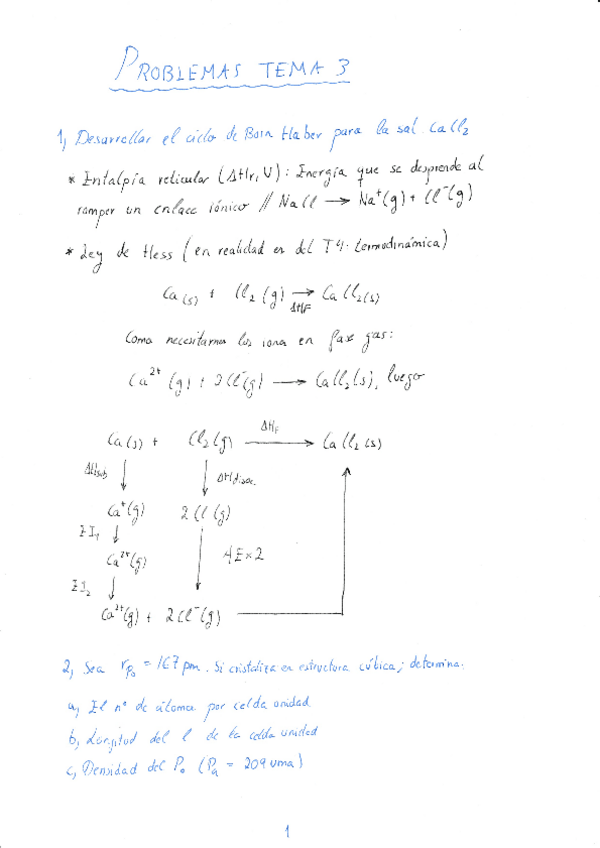 PROBLEMAS TEMA 3
1, Desarrollar el ciclo de Born Haber para la sal CaCl₂
* Entalpía reticular (ΔHr, U): Energía que se desprende al
romper un enlace iónico // NaCl → Na⁺(g) + Cl⁻(g)
* Ley de Hess (en realidad es del T4. termodinámica)
Ca(s) + Cl₂(g) → CaCl₂(s)
ΔHF
Como necesitamos los iones en fase gas:
Ca²⁺(g) + 2Cl⁻(g) → CaCl₂(s), luego
Ca(s) + Cl₂(g) ΔHF → CaCl₂(s)
ΔHsub ↓ ↓ ΔHdisoc.
Ca⁺(g) 2Cl(g)
EI₁ ↓
Ca²⁺(g) ↓ AE×2
EI₂ ↓
Ca²⁺(g) + 2Cl⁻(g)
2, Sea rPo = 167 pm. Si cristaliza en estructura cúbica; determina:
a, El nº de átomos por celda unidad
b, Longitud del l de la celda unidad
c, Densidad del Po (Pa = 209 uma)
1